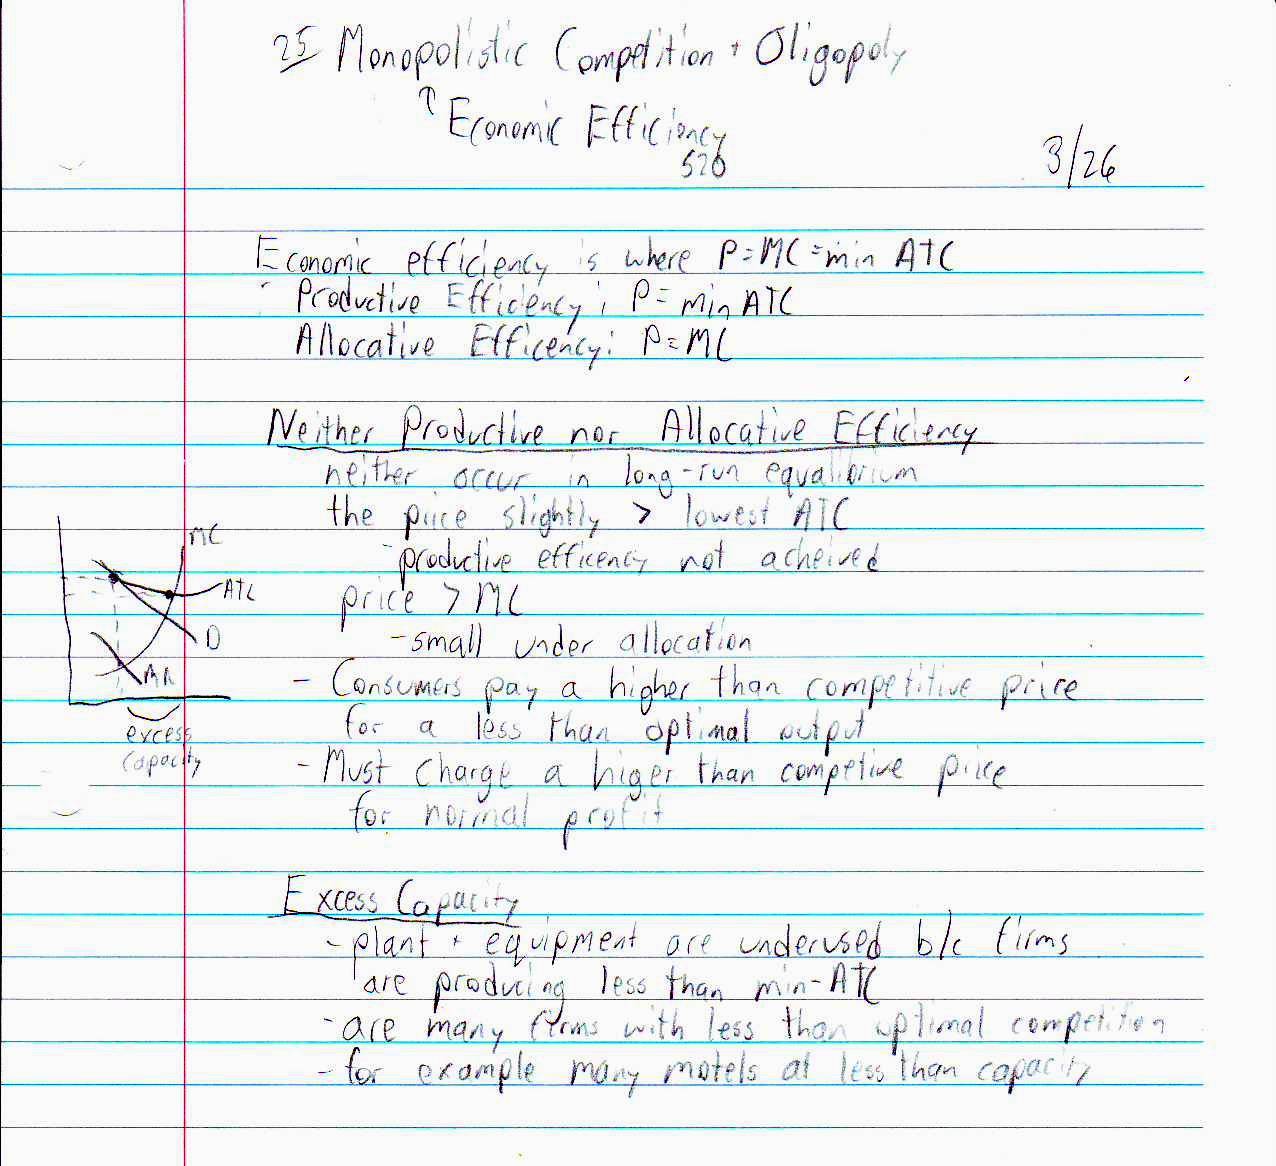 25 Monopolistic Competition + Oligopoly
↑ Economic Efficiency
520
3/26
Economic efficiency is where P=MC=min ATC
Productive Efficiency; P=min ATC
Allocative Efficency: P=MC
Neither Productive nor Allocative Efficiency
neither occur in long-run equalibrium
the price slightly > lowest ATC
-productive efficency not acheived
price > MC
-small under allocation
- Consumers pay a higher than competitive price
for a less than optimal output
- Must charge a higer than competive price
for normal profit
MC
ATC
D
MR
excess
capacity
Excess Capacity
- plant + equipment are underused b/c firms
are producing less than min-ATC
- are many firms with less than optimal competition
- for example many motels at less than capacity